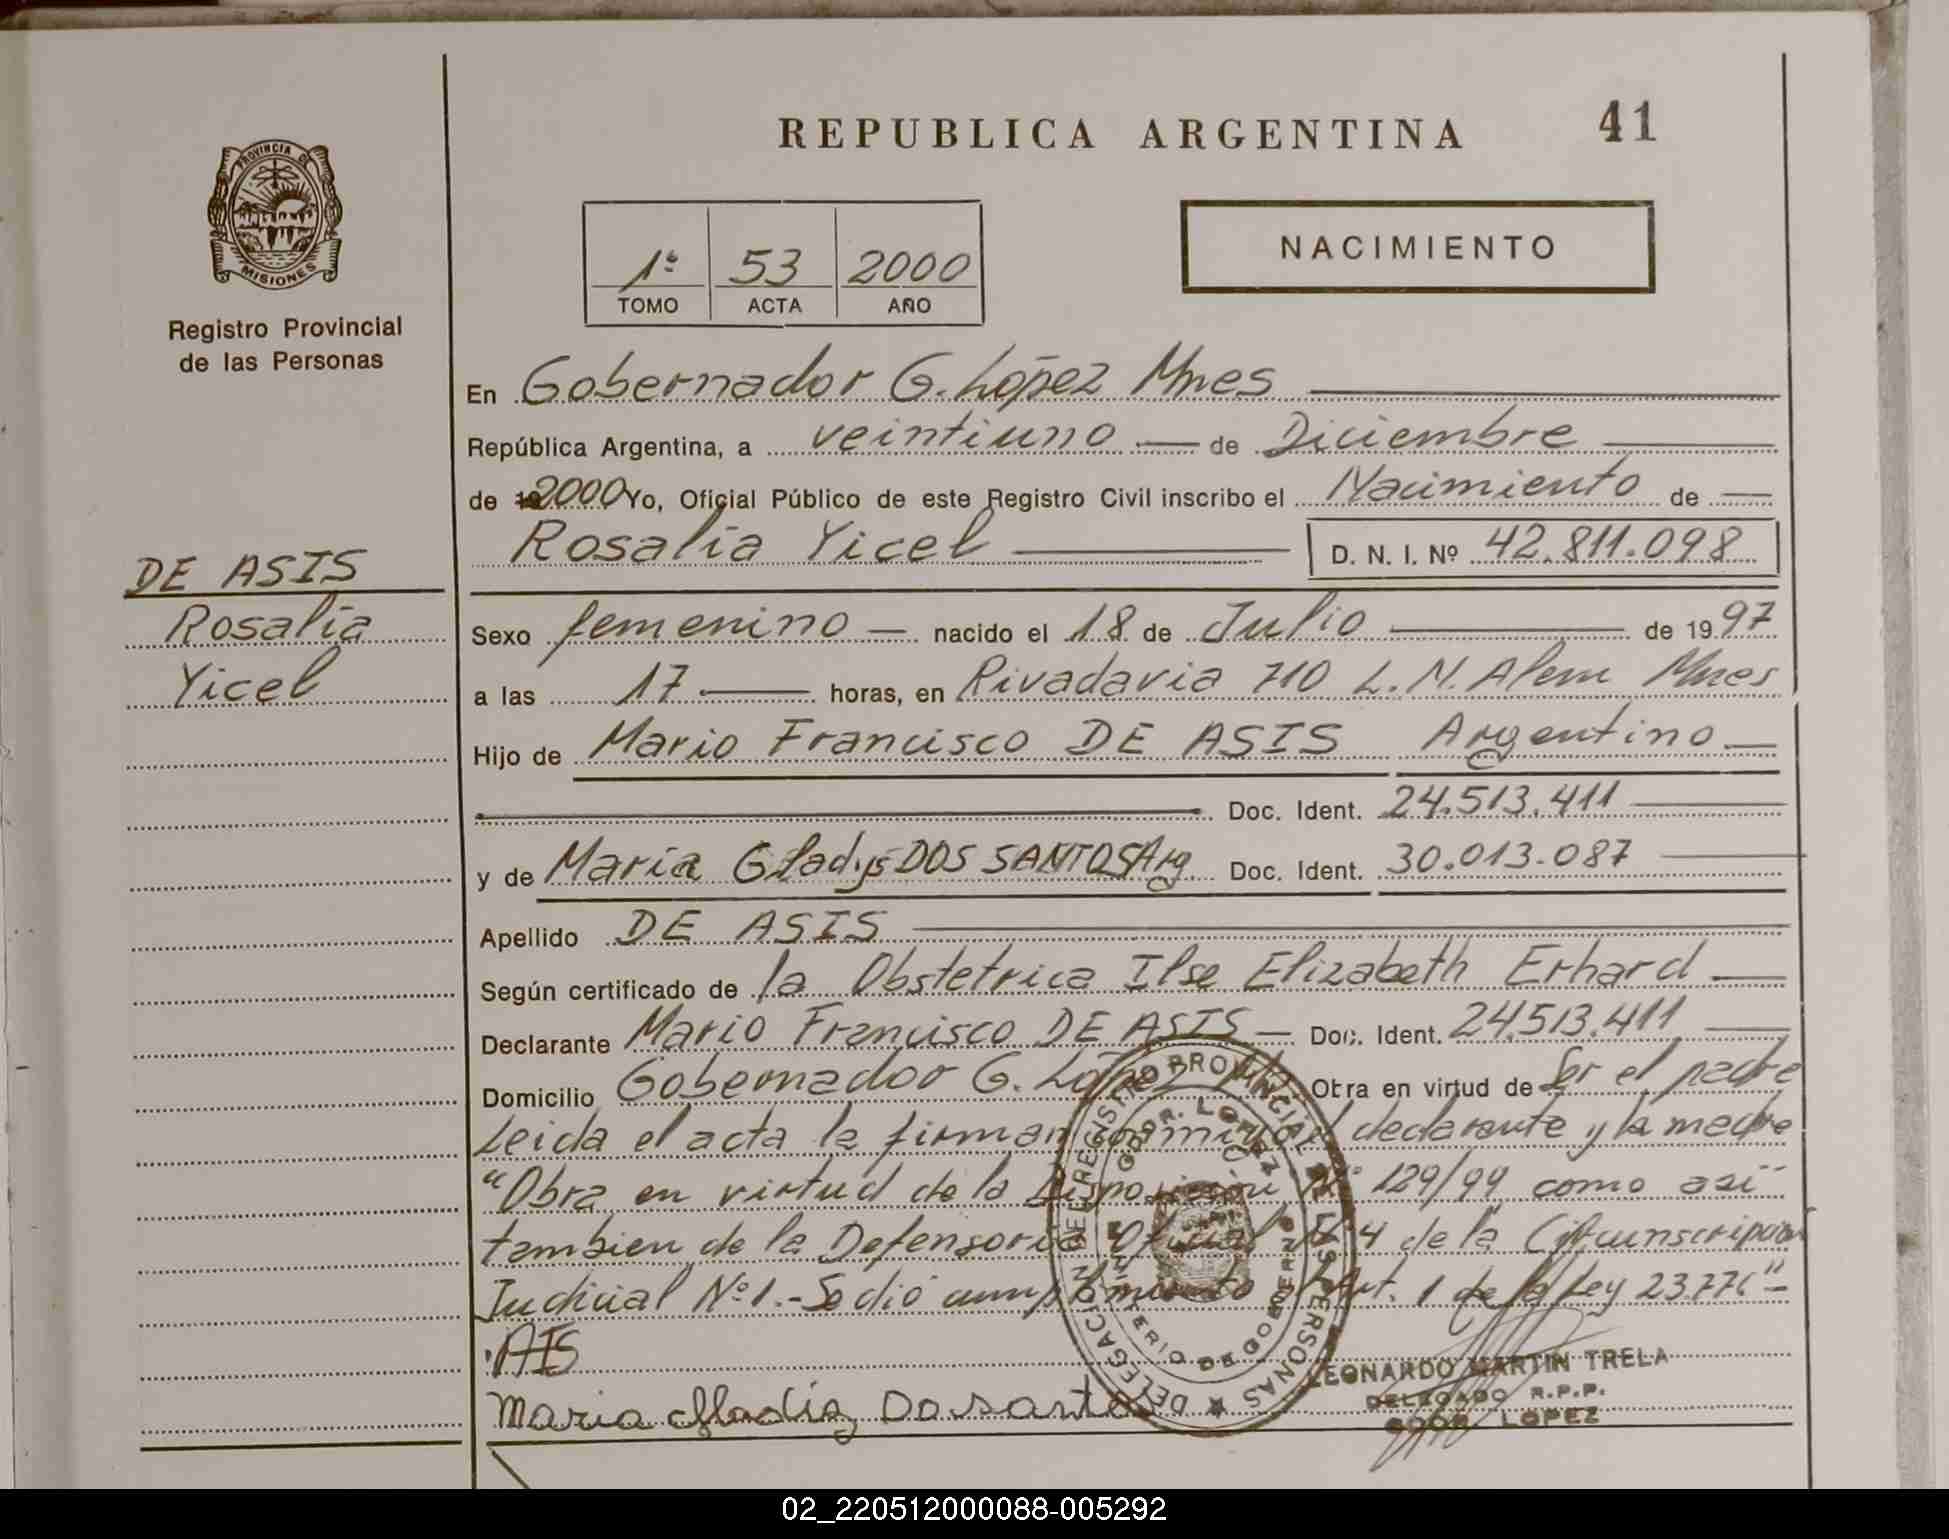 REPUBLICA ARGENTINA
41
PROVINCIA DE
MISIONES
Registro Provincial
de las Personas
1º 53 2000
TOMO ACTA AÑO
NACIMIENTO
En Gobernador G. López Mnes
República Argentina, a veintiuno de Diciembre
de 19 2000 Yo, Oficial Público de este Registro Civil inscribo el Nacimiento de
Rosalía Yicel D. N. I. Nº 42.811.098
DE ASIS
Rosalía
Yicel
Sexo femenino nacido el 18 de Julio de 1997
a las 17 horas, en Rivadavia 710 L. N. Alem Mnes
Hijo de Mario Francisco DE ASIS Argentino
Doc. Ident. 24.513.411
y de María Gladys DOS SANTOS Arg Doc. Ident. 30.013.087
Apellido DE ASIS
Según certificado de la Obstetrica Ilse Elizabeth Erhard
Declarante Mario Francisco DE ASIS Doc. Ident. 24.513.411
Domicilio Gobernador G. López Otra en virtud de Ser el padre
Leida el acta la firman conmigo el declarante y la madre
"Obra en virtud de la Disposicion Nº 129/99 como asi
tambien de la Defensoria Oficial Nº 4 de la Circunscripcion
Judicial Nº 1.- Se dió cumplimiento Art. 1 de la Ley 23.776"
Maria Gladis Dosantos
DELEGACION DEL REGISTRO PROVINCIAL DE LAS PERSONAS
GDOR. LOPEZ
MINISTERIO DE GOBIERNO
LEONARDO MARTIN TRELA
DELEGADO R.P.P.
GDOR. LOPEZ
02_220512000088-005292